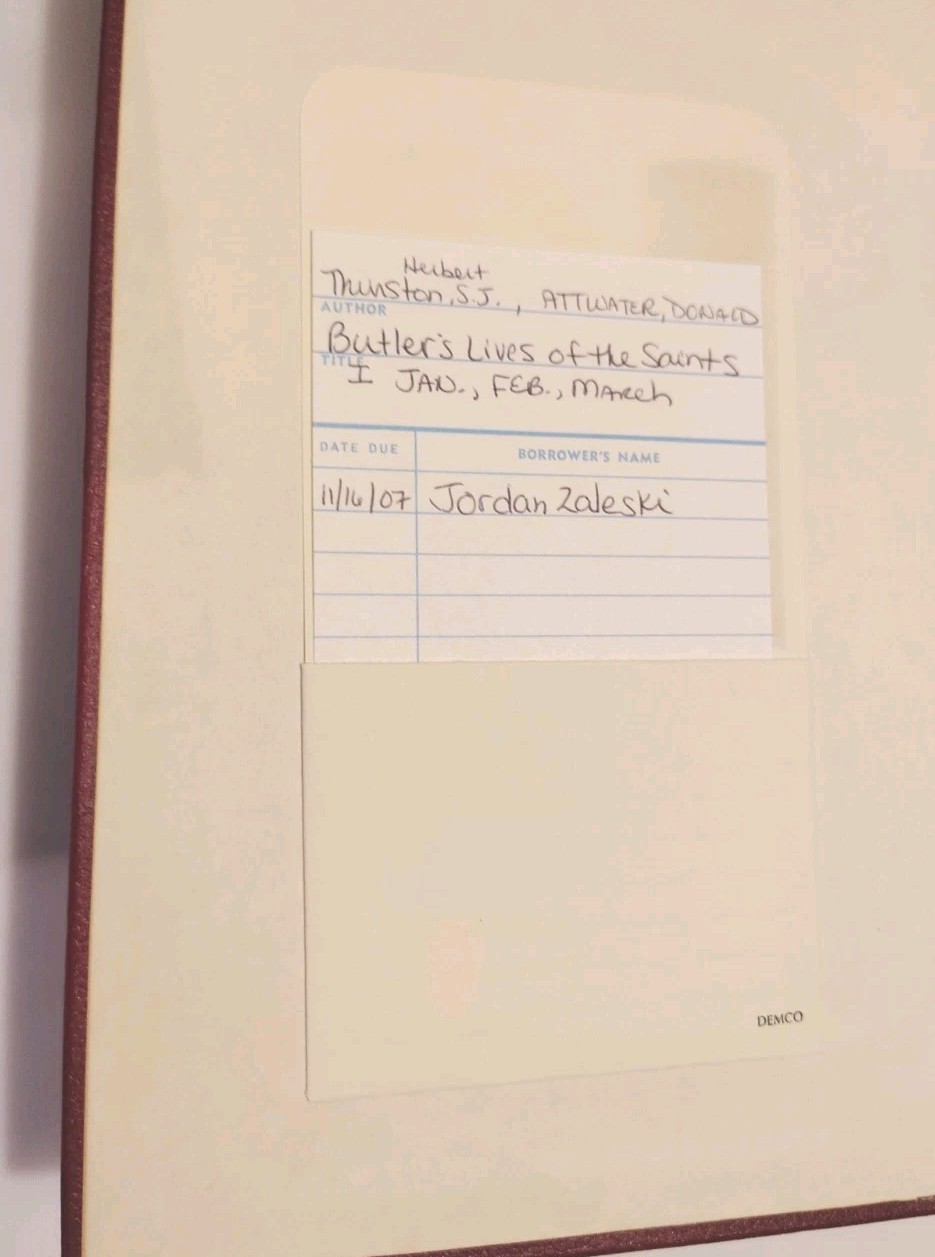 Herbert
Thurston, S.J., ATTWATER, DONALD
AUTHOR
Butler's Lives of the Saints
TITLE
I JAN., FEB., MARch
DATE DUE BORROWER'S NAME
11/16/07 Jordan Zaleski
DEMCO